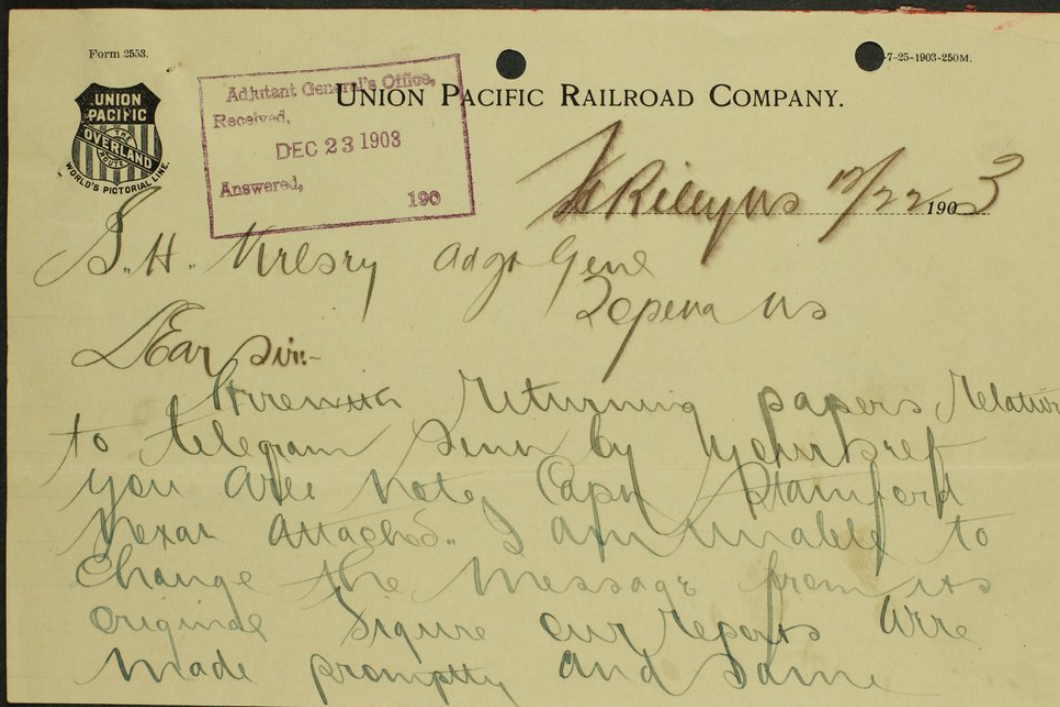 Form 2553.
7-25-1903-250M.
UNION PACIFIC
THE OVERLAND ROUTE
WORLD'S PICTORIAL LINE.
Adjutant General's Office,
Received,
DEC 23 1903
Answered,
190
UNION PACIFIC RAILROAD COMPANY.
Ft Riley Ks 12/22 1903
S. H. Adgt Genl
Topeka Ks
Dear Sir:-
Herewith returning papers relative
to telegram sent by yourself
you will note Capt Stamford
attached. I am unable to
change the message from its
original figure our reports are
made promptly and same